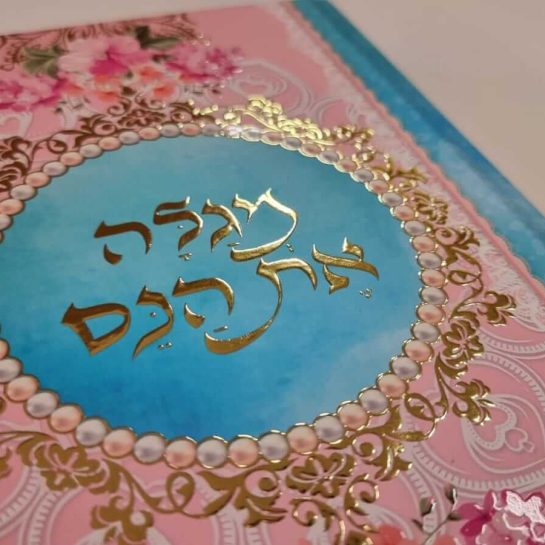 תְּגַלֶּה
אֶת הַנֵּס